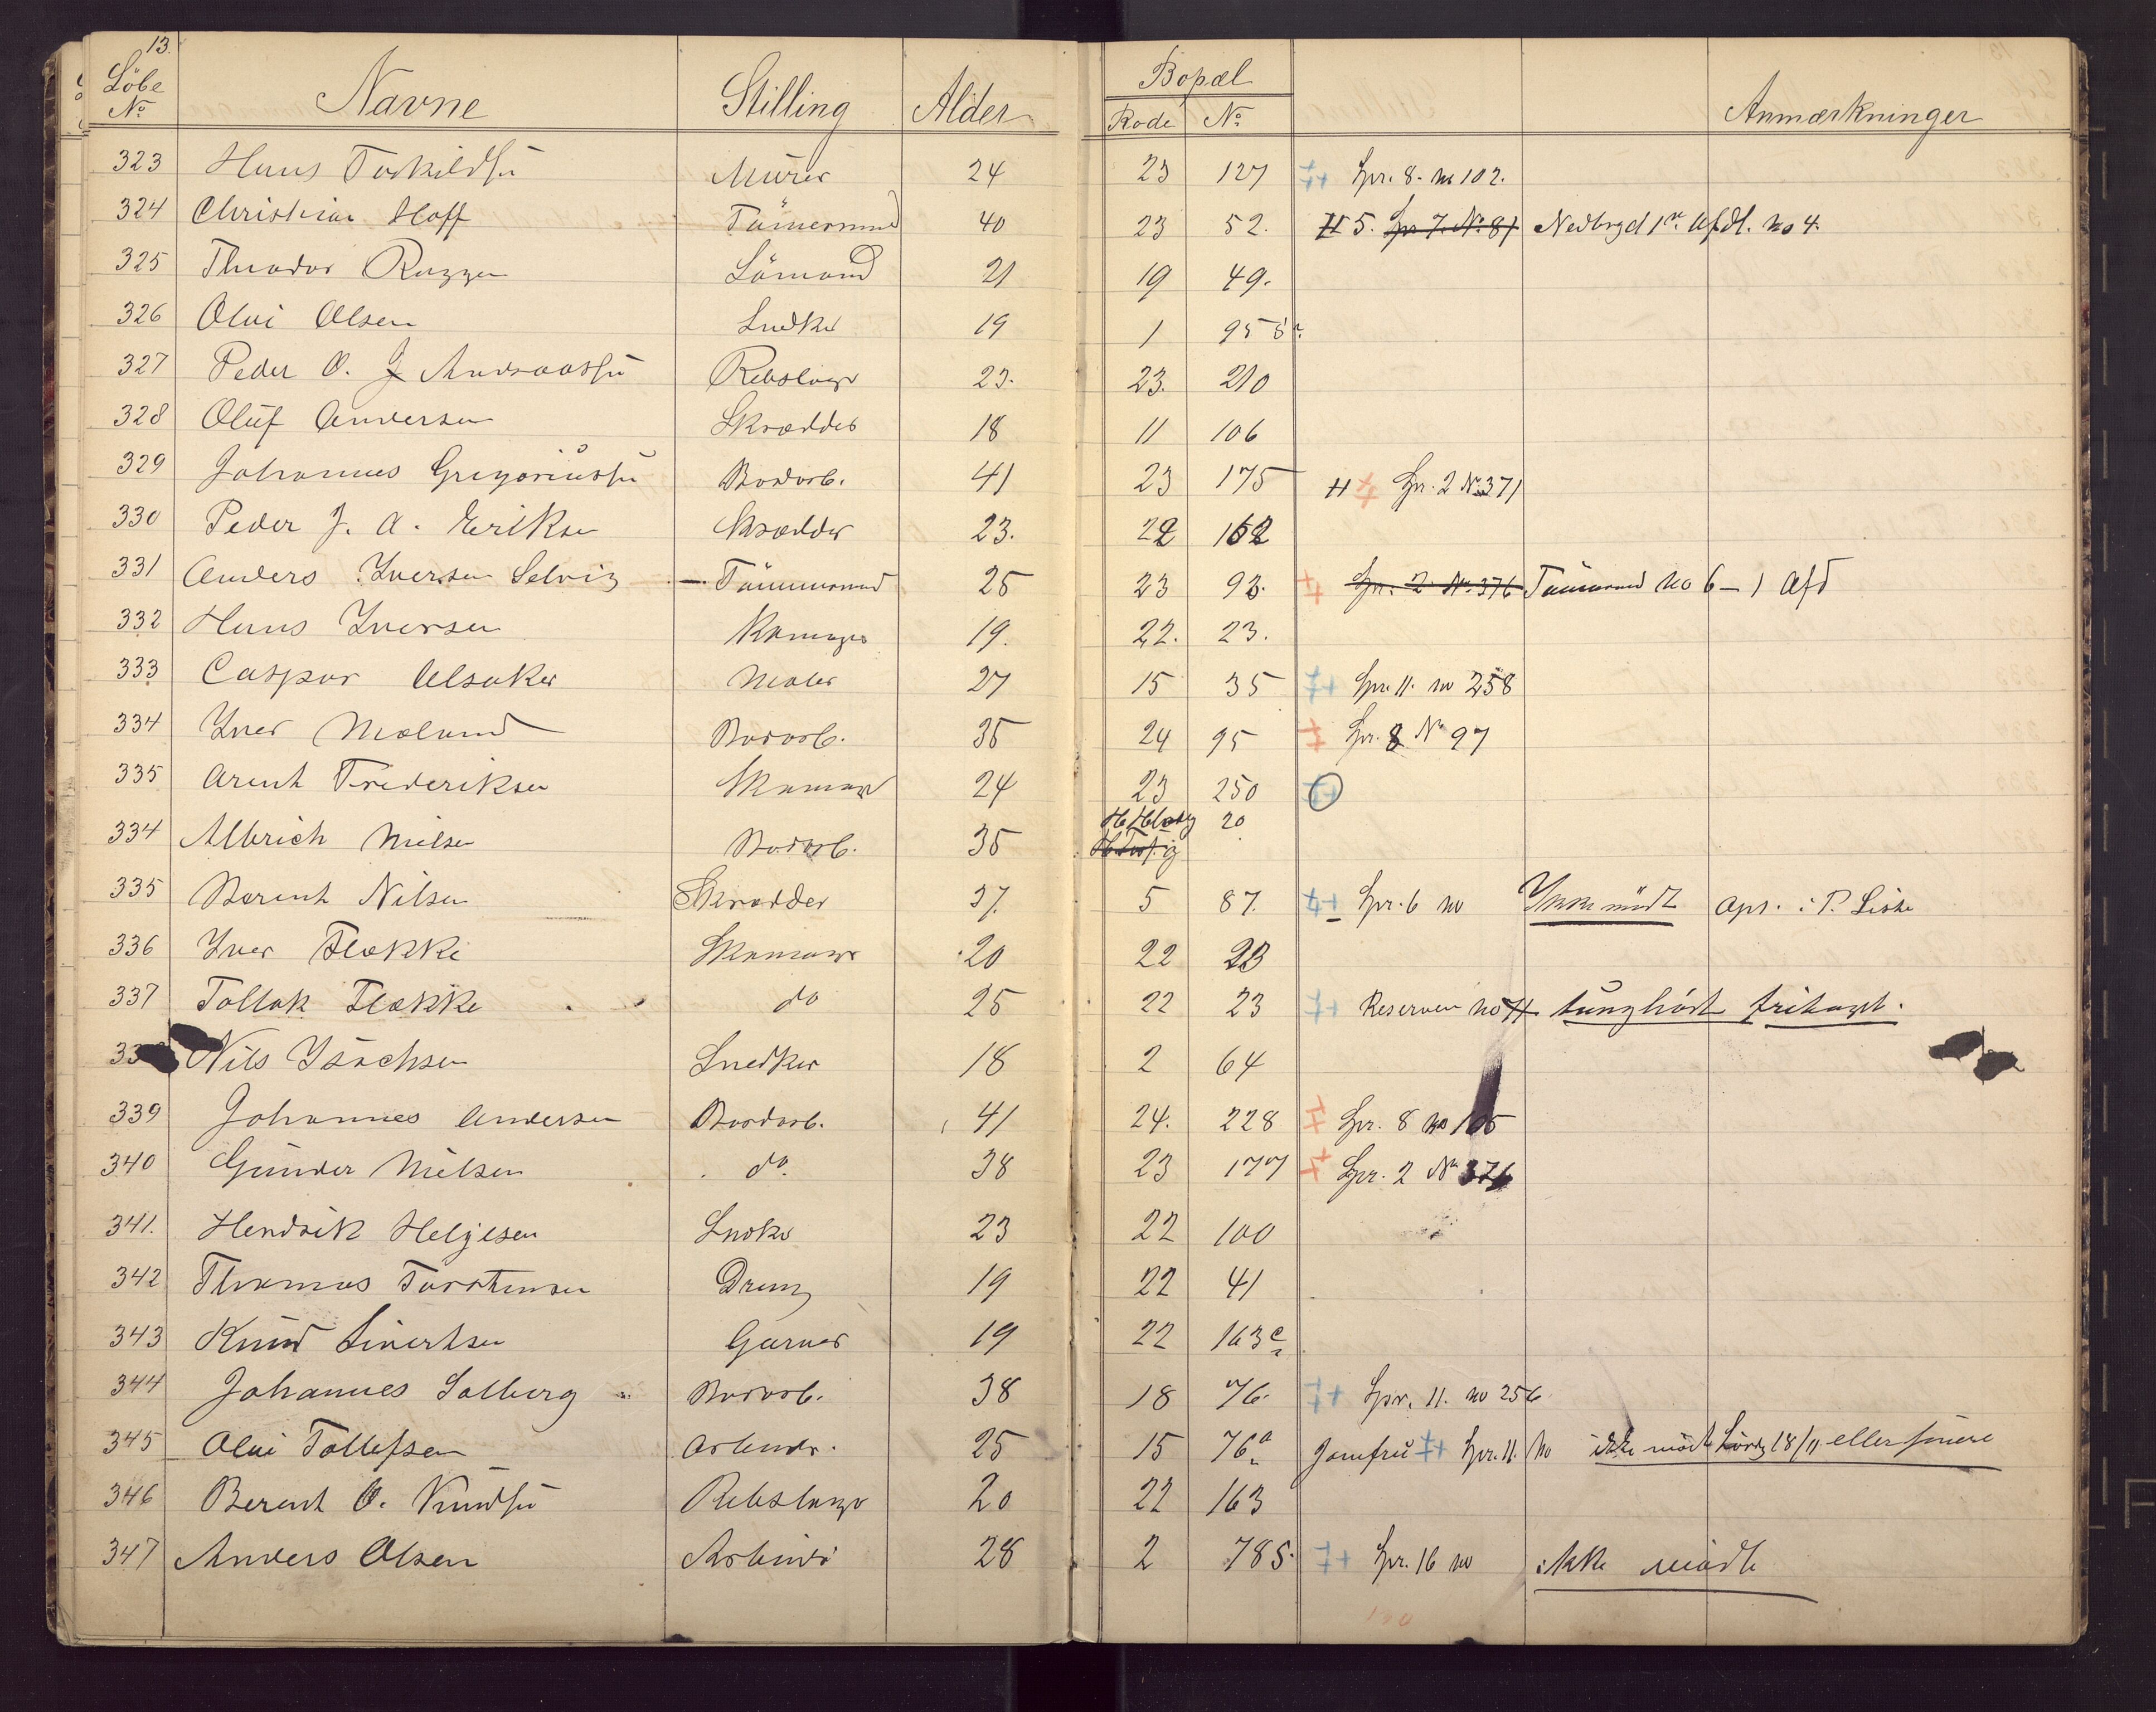 13.
Löbe No Navne Stilling Alder Bopæl Rode No Anmærkninger
323 Hans Torkildsen Mürer 24 23 127 Spr. 8. no 102.
324 Christian Hoff Tømermnd 40 23 52. H 5. Spr 7. No 87 Nedbryd 1ste Afdl. no 4.
325 Theodor 21 19 49.
326 Oluі Olsen Snedker 19 1 95
327 Peder O. J Andreassen Rebslager 23. 23. 210
328 Oluf Andersen Skrædder 18 11 106
329 Johannes Gregoriussen Bodarb. 41 23 175 H Spr. 2 No 371
330 Peder J. A. Eriksen Skrædder 23. 22 162
331 Anders Iversen Selvig Tømmermand 25 23 93. Spr. 2 No 376 Tømmermand no 6 – 1 Afd
332 Hans Iversen 19. 22. 23.
333 Caspar Alsaker Maler 27 15 35 Spr. 11. no 258
334 Iver Mæland Bodarb. 35 24 95 Spr. 8 No 97
335 Arent Frederiksen Skomager 24 23 250
334 Albrich Nielsen Bodarb. 35 20
335 Berent Nilsen Skrædder 37. 5 87. Spr. 6 no Ikke mödt Aps. i P. Liste
336 Iver Flokke Skomager 20 22 23
337 Tollak Flokke do 25 22 23 Reserven no tunghört fritaget.
Nils Isachsen Snedker 18 2 64
339 Johannes Andersen Bordarb. 41 24. 228 Spr. 8 no 105
340 Gunder Nielsen do. 38 23 177 Spr. 2 No 376
341. Hendrik Helgesen Snedker 23 22 100
342 Thomas Torstensen Dreng 19 22 41
343 Knud Sivertsen Garver 19 22 163 c
344 Johannes Solberg Bodarb. 38 18 76. Spr. 11. no 256
345 Olai Tollefsen Arbeider. 25 15 76 a Jomfru Spr. 11. no ikke mödt Lörd 18/11 eller senere
346 Berent O. Knudsen Rebslager 20 22 163
347 Anders Olsen Arbeider 28 2 785. Spr. 16 no ikke mödt